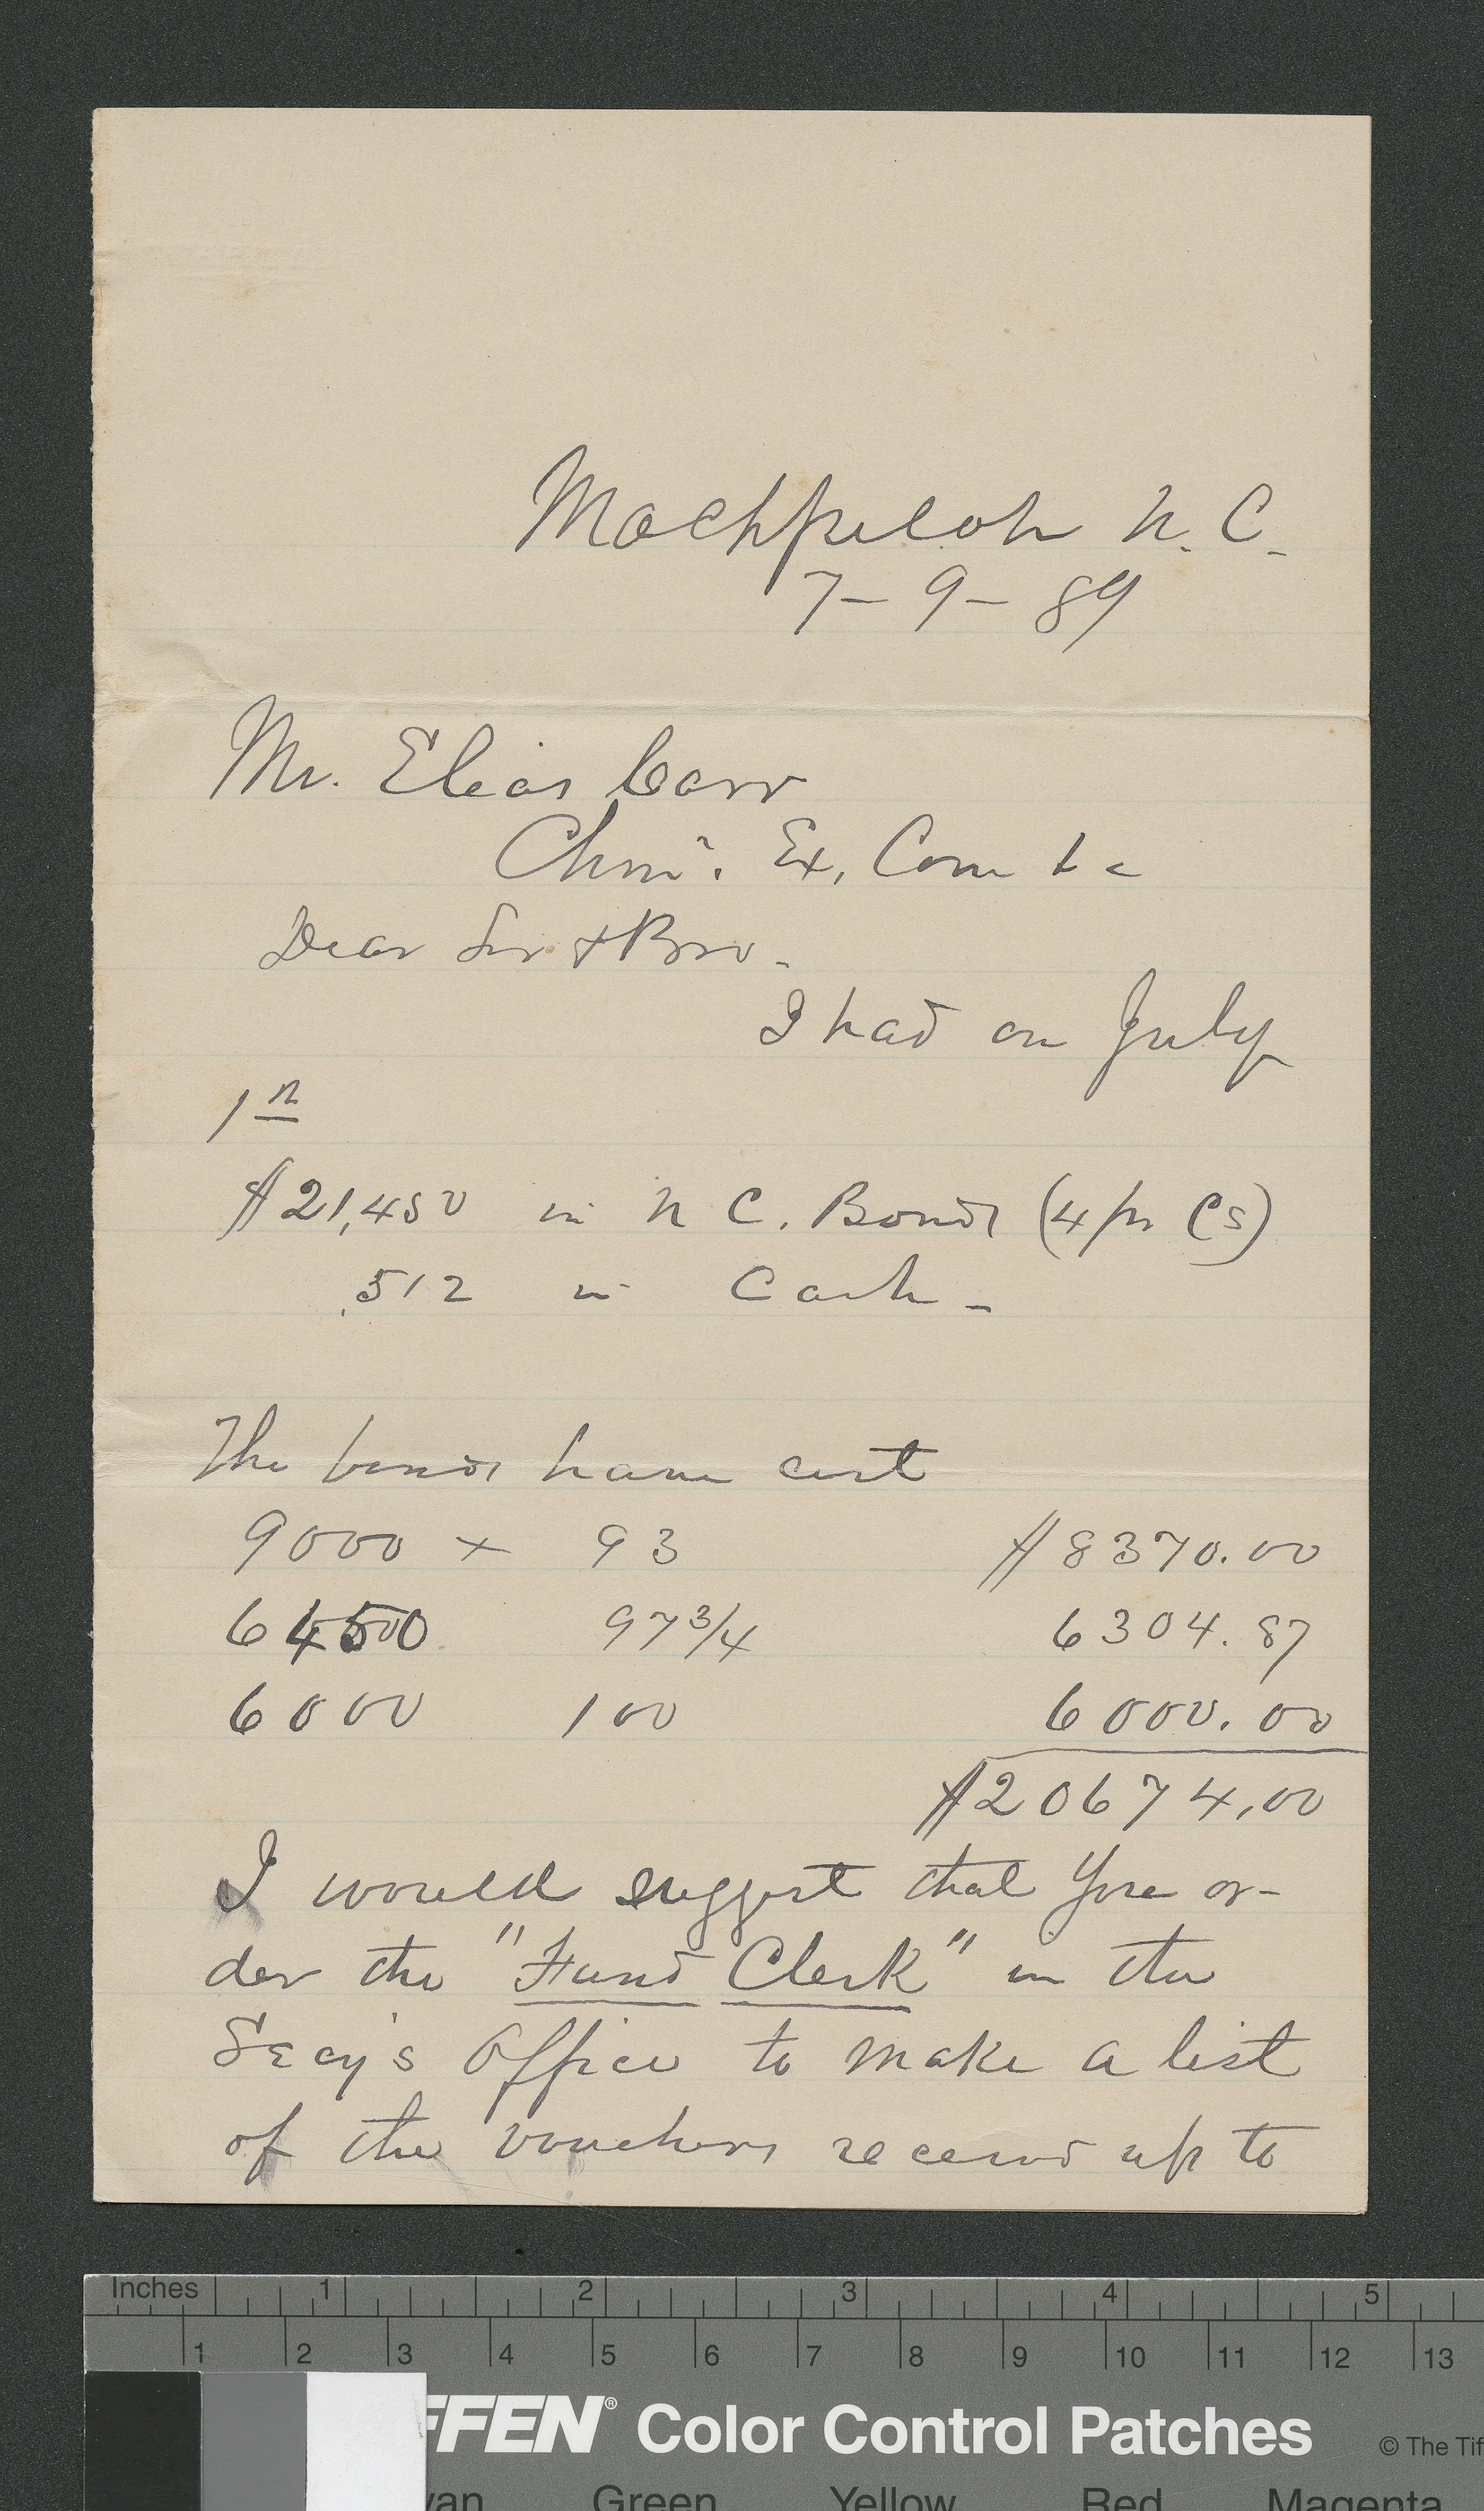 Machpelah N. C.
7-9-89
Mr. Elias Carr
Chmn. Ex. Comte
Dear Sir & Bro.
I had on July
1st
$21,450 in N C. Bonds (4 pr Cs)
512 in Cash -
The bonds have cost
9000 x 93 $8370.00
6450 97 3/4 6304.87
6000 100 6000.00
$20674.00
I would suggest that you or-
der the "Fund Clerk" in the
Secy's Office to make a list
of the vouchers received up to
Inches 1 2 3 4 5
1 2 3 4 5 6 7 8 9 10 11 12 13
FFEN® Color Control Patches © The Tif
yan Green Yellow Red Magenta